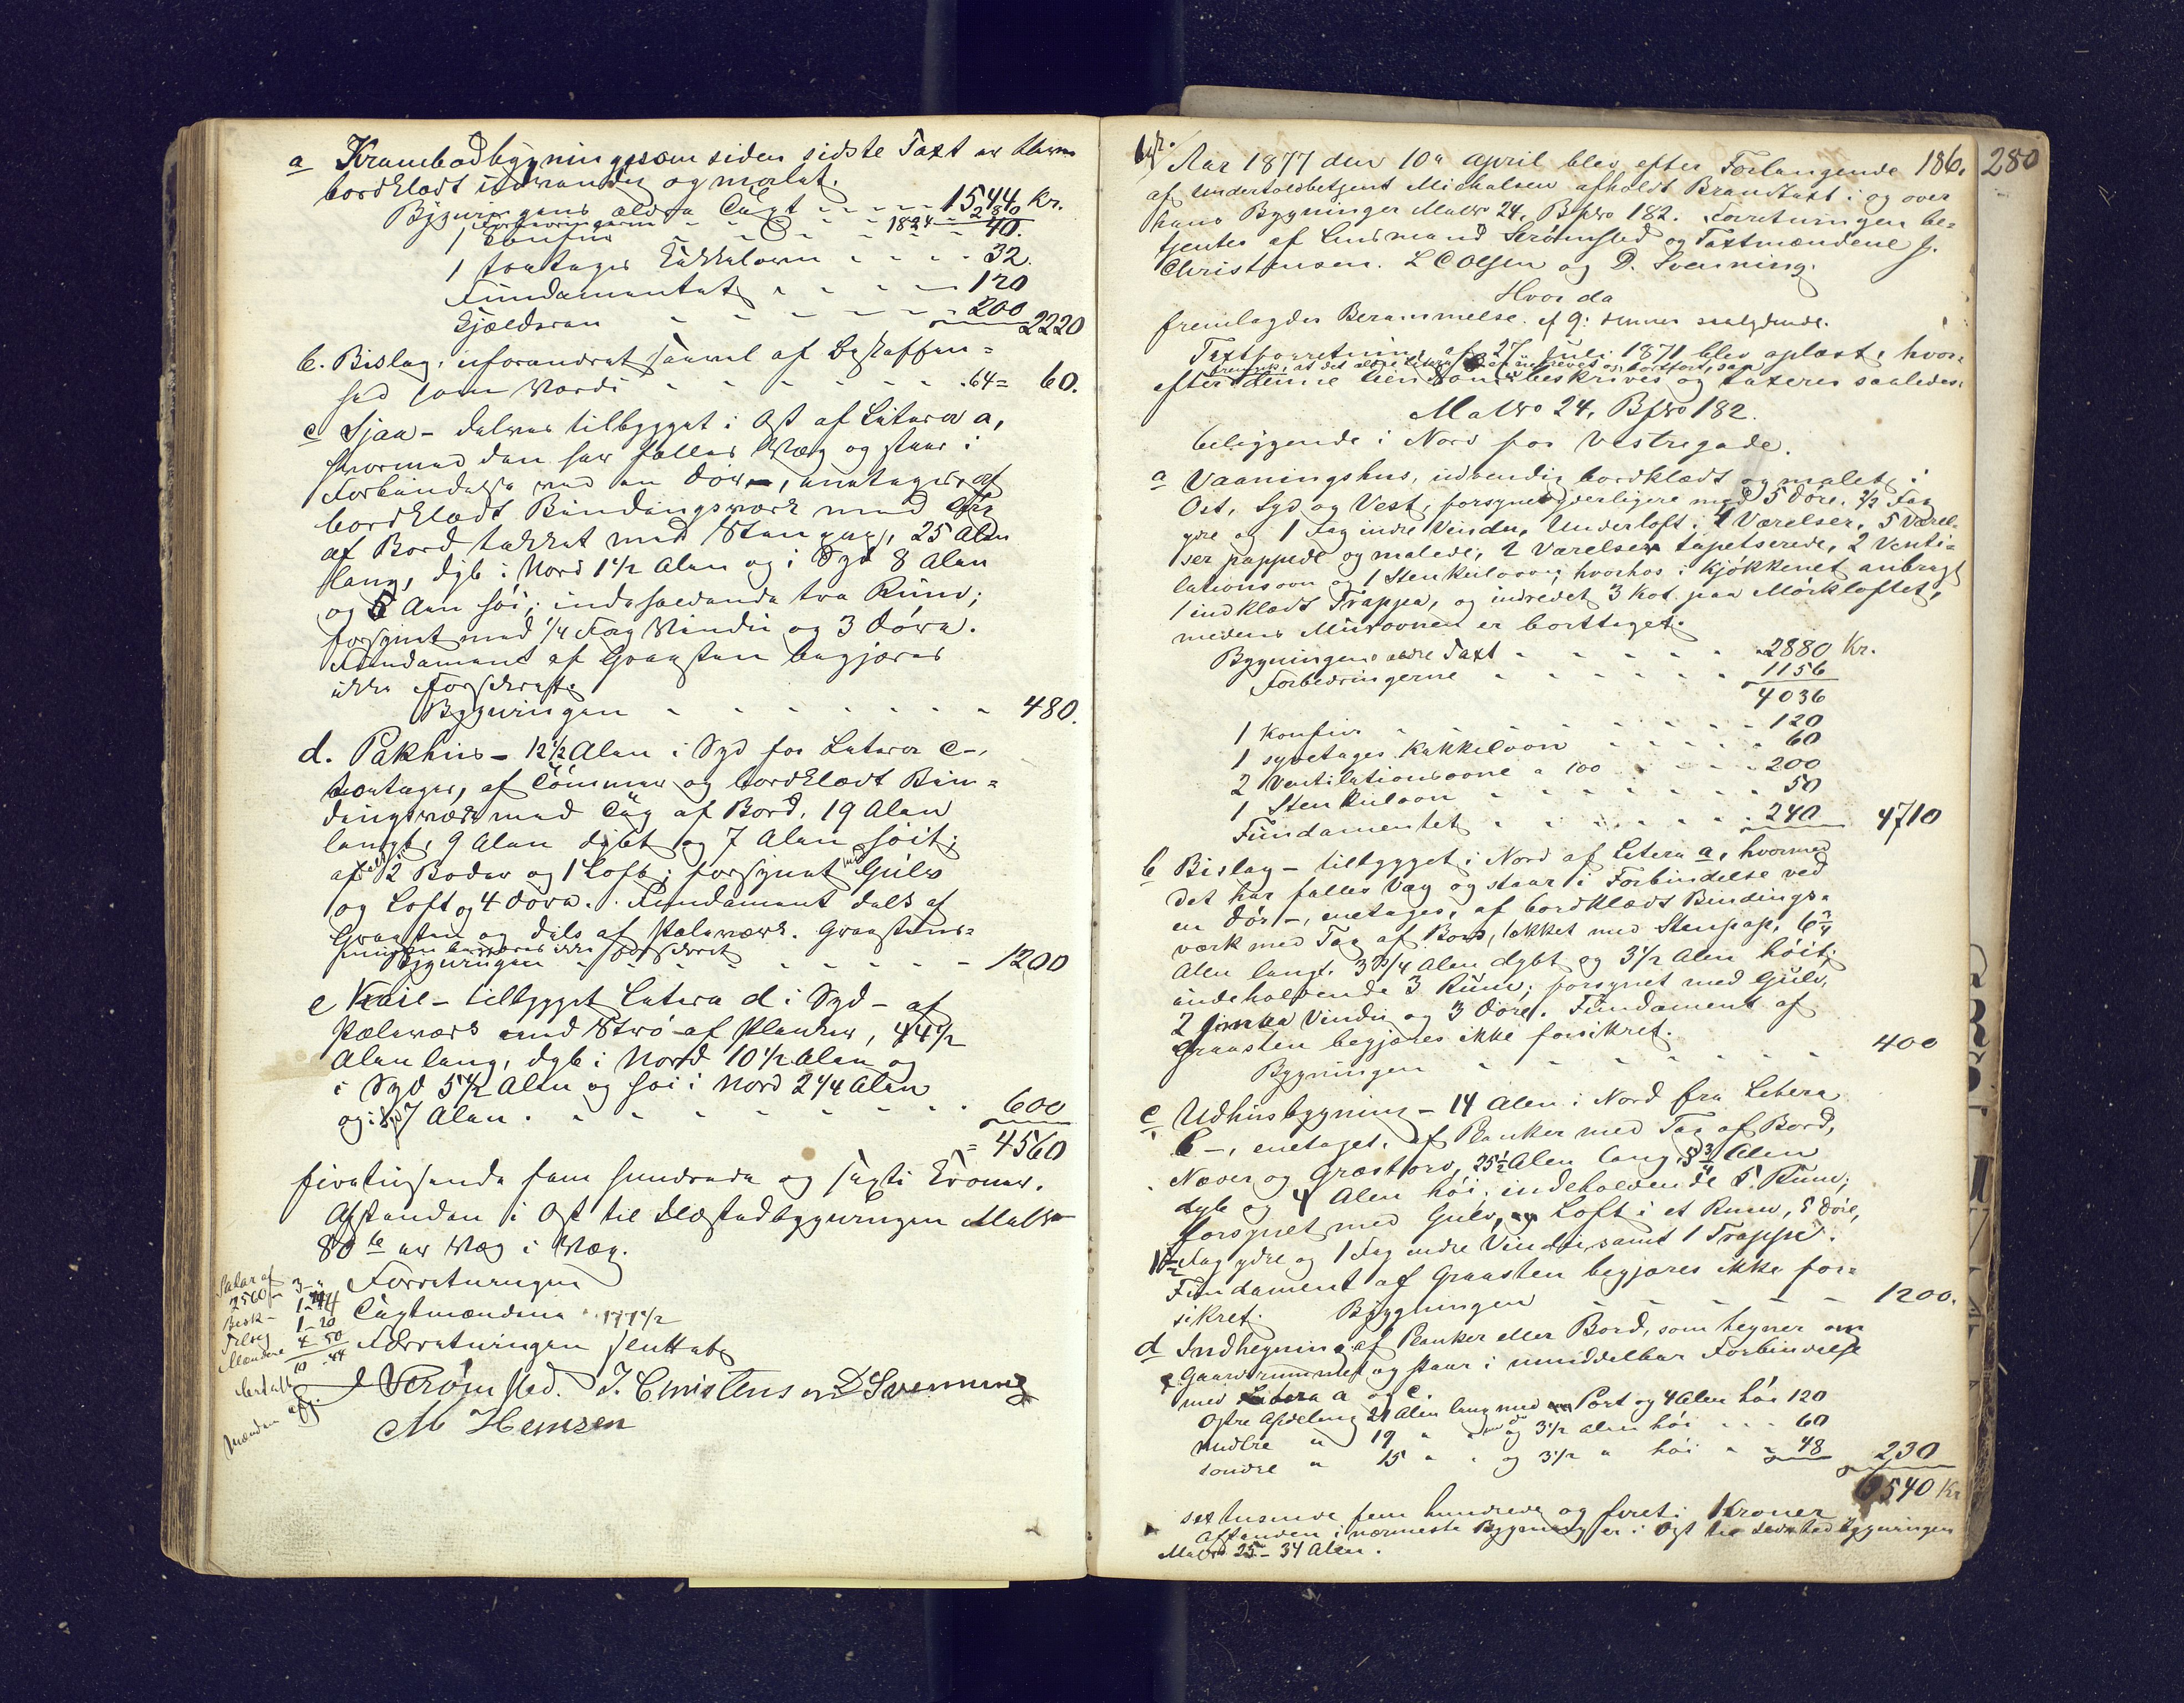 a Krambodbygning, som siden sidste Taxt er bleven
bordklædt udvendig og malet.
Bygningens ældre Taxt - - - 1544 Kr.
Forbedringerne - - - 280
1824
1 Konfuir - - - 40.
1 totages Kakkelovn - - - 32.
Fundamentet - - - 120
Kjælderen - - - 200
2220
b. Bislag, uforandret saavel af Beskaffen=
hed som Værdi - - - 64= 60.
c Sjaa - delvis tilbygget i Øst af Litera a,
hvormed den har fælles Væg og staar i
Forbindelse ved en Dør -, enetages, af
bordklædt Bindingsværk med Tag
af Bord tækket med Stenpap, 25 Alen
lang, dyb i Nord 1 1/2 Alen og i Syd 8 Alen
og 5 Alen høi; indeholdende tre Rum;
forsynet med 1/4 Fag Vindu og 3 Døre.
Fundament af Graasten begjæres
ikke forsikret.
Bygningen - - - 480.
d. Pakhus - 12 1/2 Alen i Syd for Litera c -,
toetages, af Tømmer og bordklædt Bin=
dingsværk med Tag af Bord, 19 Alen
langt, 9 Alen dybt og 7 Alen høit;
af 2 Boder og 1 Loft; forsynet med Gulv
og Loft og 4 Døre. Fundament dels af
Graasten og dels af Pæleværk. Graastens=
muren begjæres ikke forsikret
Bygningen - - - 1200
e Kaie - tilbygget Litera d i Syd - af
Pæleværk med Strø af Planker, 44 1/2
Alen lang, dyb i Nord 10 1/2 Alen og
i Syd 5 1/2 Alen og høi i Nord 2 1/4 Alen
og i Syd 7 Alen. - - - 600
= 4560
firetusende fem hundrede og sexti Kroner.
Afstanden i Øst til Søstadbygningen MatNo
80 b er Væg i Væg.
Forretningen
Taxtmændene
Forretningen sluttet
Salær af 3 - "
2560 1 - 44
Besk - 1 - 20
Mændene 4 - 50
10 - 44
betalt
Mændene afg.
Strømsted. J. Christensen D Svenning
M Hemsen
186. 280
Aar 1877 den 10de April blev efter Forlangende
af Undertoldbetjent Michalsen afholdt Brandtaxt i og over
hans Bygninger MatNo 24, BpNo 182. Forretningen be=
tjentes af Lensmand Strømsted og Taxtmændene J.
Christensen. L C Olsen og D. Svenning.
Hvor da
fremlagdes Berammelse af 9: dennes saalydende.
Taxtforretning af 27 Juli 1871 blev oplæst, hvor=
efter denne Eiendom beskrives og taxeres saaledes:
MatNo 24, BpNo 182.
beliggende i Nord for Vestregade.
a Vaaningshus, udvendig bordklædt og malet i
Øst, Syd og Vest, forsynet yderligere med 5 Døre, 2/2 Fag
ydre og 1 Fag indre Vindu, Underloft i 4 Værelser, 5 Værel-
ser pappede og malede, 2 Værelser tapetserede, 2 Venti=
lationsovn og 1 Stenkulovn; hvorhos i Kjøkkenet anbragt
1 indklædt Trappe, og indredet 3 Kot paa Mørkloftet,
medens Murovnen er borttaget.
Bygningens ældre Taxt - - - 2880 Kr.
Forbedringerne - - - 1156
4036
1 Konfuir - - - 120
1 syvetages Kakkelovn - - - 60
2 Ventilationsovne a 100 - - - 200
1 Stenkulovn - - - 50
Fundamentet - - - 240 4710
b Bislag - tilbygget i Nord af Litera a, hvormed
det har fælles Væg og staar i Forbindelse ved
en Dør -, enetages, af bordklædt Bindings=
værk med Tag af Bord, tækket med Stenpap, 6 3/4
Alen langt, 3 3/4 Alen dybt og 3 1/2 Alen høit;
indeholdende 3 Rum; forsynet med Gulv,
2 smaa Vindu og 3 Døre. Fundament af
Graasten begjæres ikke forsikret.
Bygningen - - - 400
c Udhusbygning - 14 Alen i Nord fra Litera
b -, enetages, af Planker med Tag af Bord,
Næver og Græstorv, 25 1/2 Alen lang, 8 3/4 Alen
dyb og 4 Alen høi; indeholdende 5 Rum;
forsynet med Gulv, Loft i et Rum, 5 Døre,
Fag ydre og 1 Fag indre Vindu, samt 1 Trappe.
Fundament af Graasten begjæres ikke for=
sikret. Bygningen - - - 1200.
d Indhegning af Planker eller Bord, som hegner om
Gaardsrummet og staar i umiddelbar Forbindelse
med Litera a og c.
Østre Afdeling 21 Alen lang med Port og 4 Alen høi 120
nordre " 19 " " og 3 1/2 Alen høi - - 60
søndre " 15 " " og 3 1/2 " høi - - 48 230
6540 Kr
sex tusinde fem hundrede og foreti Kroner
Afstanden i nærmeste Bygning er i Øst til Søstadbygningen
MatNo 25 - 34 Alen.